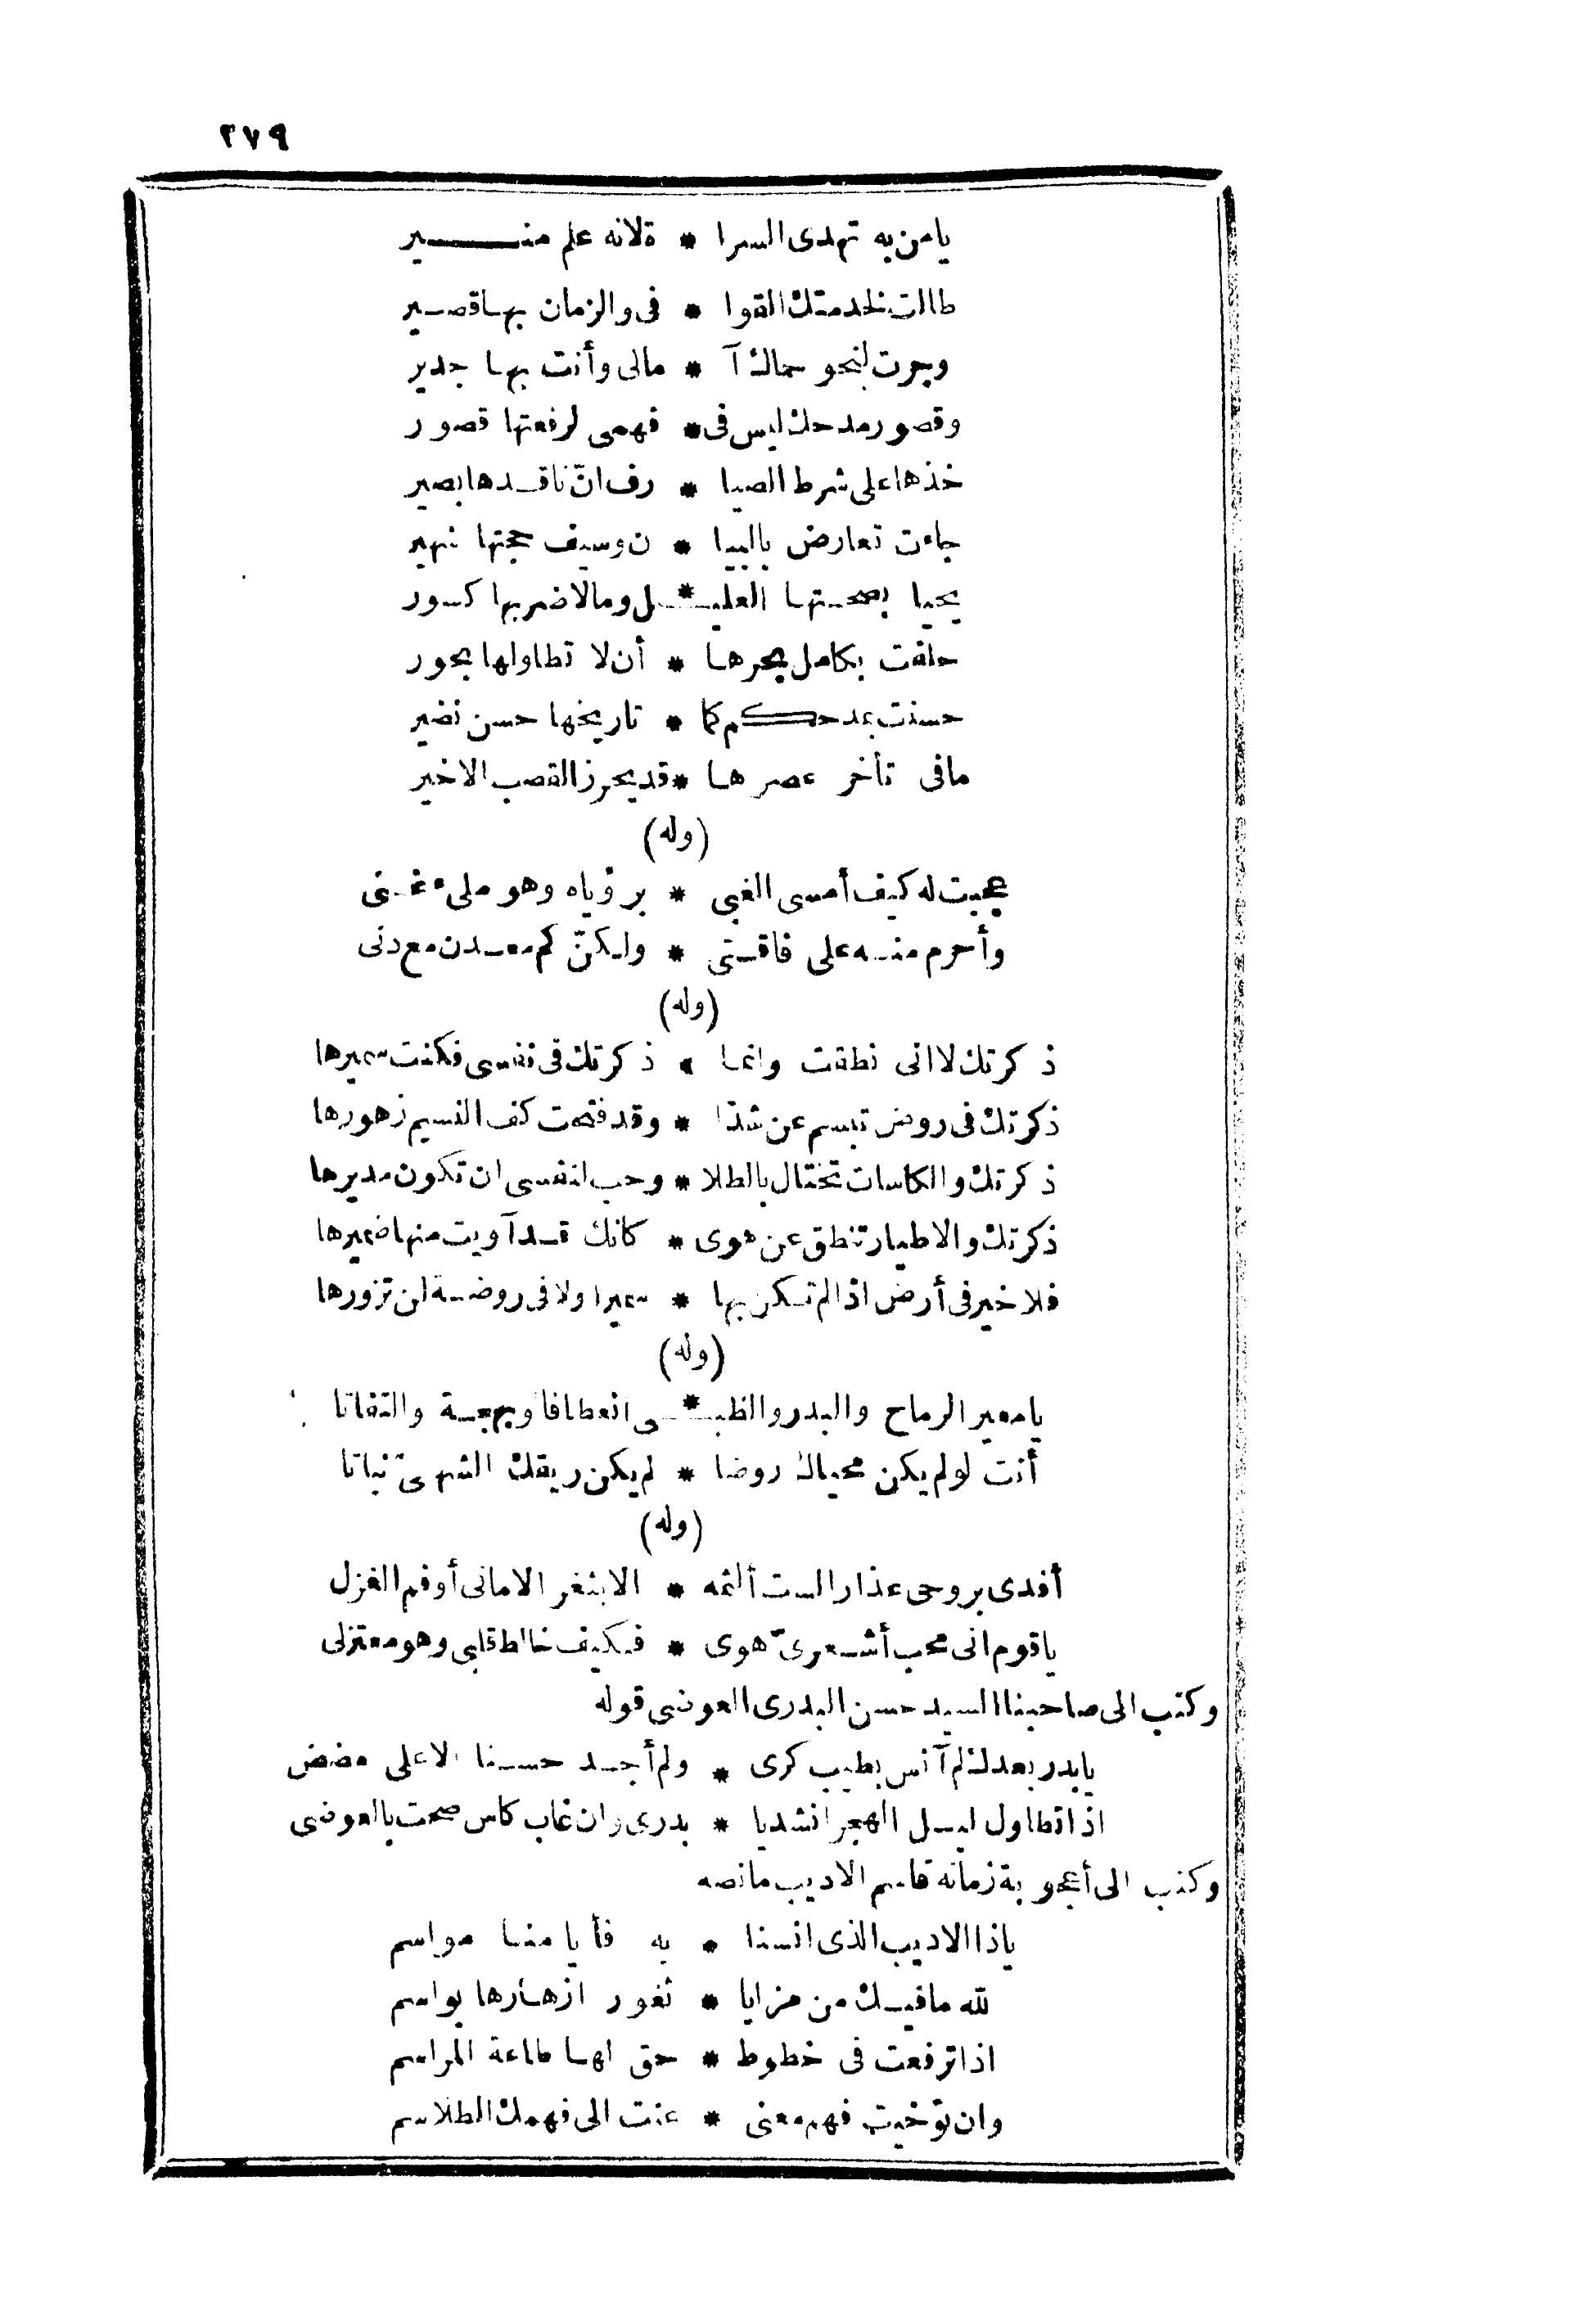 ٢٧٩
يامن به تهدى السرا * ة لانه علم منير
طالت لخدمتك القوا * فى والزمان بها قصير
وجرت لنحو حماك آ * مالى وأنت بها جدير
وقصور مدحك ليس فى * فهمى لرفعتها قصور
خذها على شرط الصيا * رف انّ ناقدها بصير
جاءت تعارض بالبيا * ن وسيف حجتها شهير
يحيا بصحتها العليـ * ـل ومالاضربها كسور
حلفت بكامل بحرها * أن لا تطاولها بحور
حسنت بمدحكم كما * تاريخها حسن نضير
مافى تأخر عصرها * قد يحرز القصب الاخير
(وله)
عجبت له كيف أمسى الغبى * برؤياه وهو ملىء غنى
وأحرم منه على فاقتى * ولكنّ كم معدن مع دنى
(وله)
ذكرتك لا انى نطقت وانما * ذكرتك فى نفسى فكنت سميرها
ذكرتك فى روض تبسم عن شذا * وقد فتحت كف النسيم زهورها
ذكرتك والكاسات تختال بالطلا * وحب لنفسى ان تكون مديرها
ذكرتك والاطيار تنطق عن هوى * كانك قد آويت منها ضميرها
فلا خير فى أرض اذا لم تكن بها * سميرا ولا فى روضة لن تزورها
(وله)
يامعير الرماح والبدر والظبـ * ـى انعطافا وبهجة والتفاتا
أنت لو لم يكن محياك روضا * لم يكن ريقك الشهىّ نباتا
(وله)
أفدى بروحى عذارا لست ألثمه * الا بثغر الامانى أو فم الغزل
ياقوم انى محب أشعرىّ هوى * فكيف خالط قلبى وهو معتزلى
وكتب الى صاحبنا السيد حسن البدرى العوضى قوله
يابدر بعدك لم آنس بطيب كرى * ولم أجد حسنا الا على مضض
اذا تطاول ليل الهجر انشد يا * بدرى وان غاب كاس صحت يالعوضى
وكتب الى أعجوبة زمانه قاسم الاديب مانصه
ياذا الاديب الذى انسنا * به فأيامنا مواسم
لله مافيك من مزايا * ثغور ازهارها بواسم
اذا ترفعت فى خطوط * حق لها طاعة المراسم
وان توخيت فهم معنى * عنت الى فهمك الطلاسم